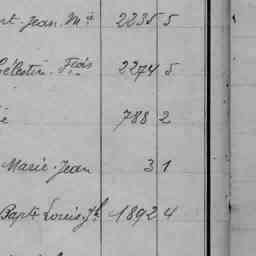 Jean Mie 2235 5
Célestin Flois 2274 5
788 2
Marie Jean 31
Bapt. Louis Jh 1892 4